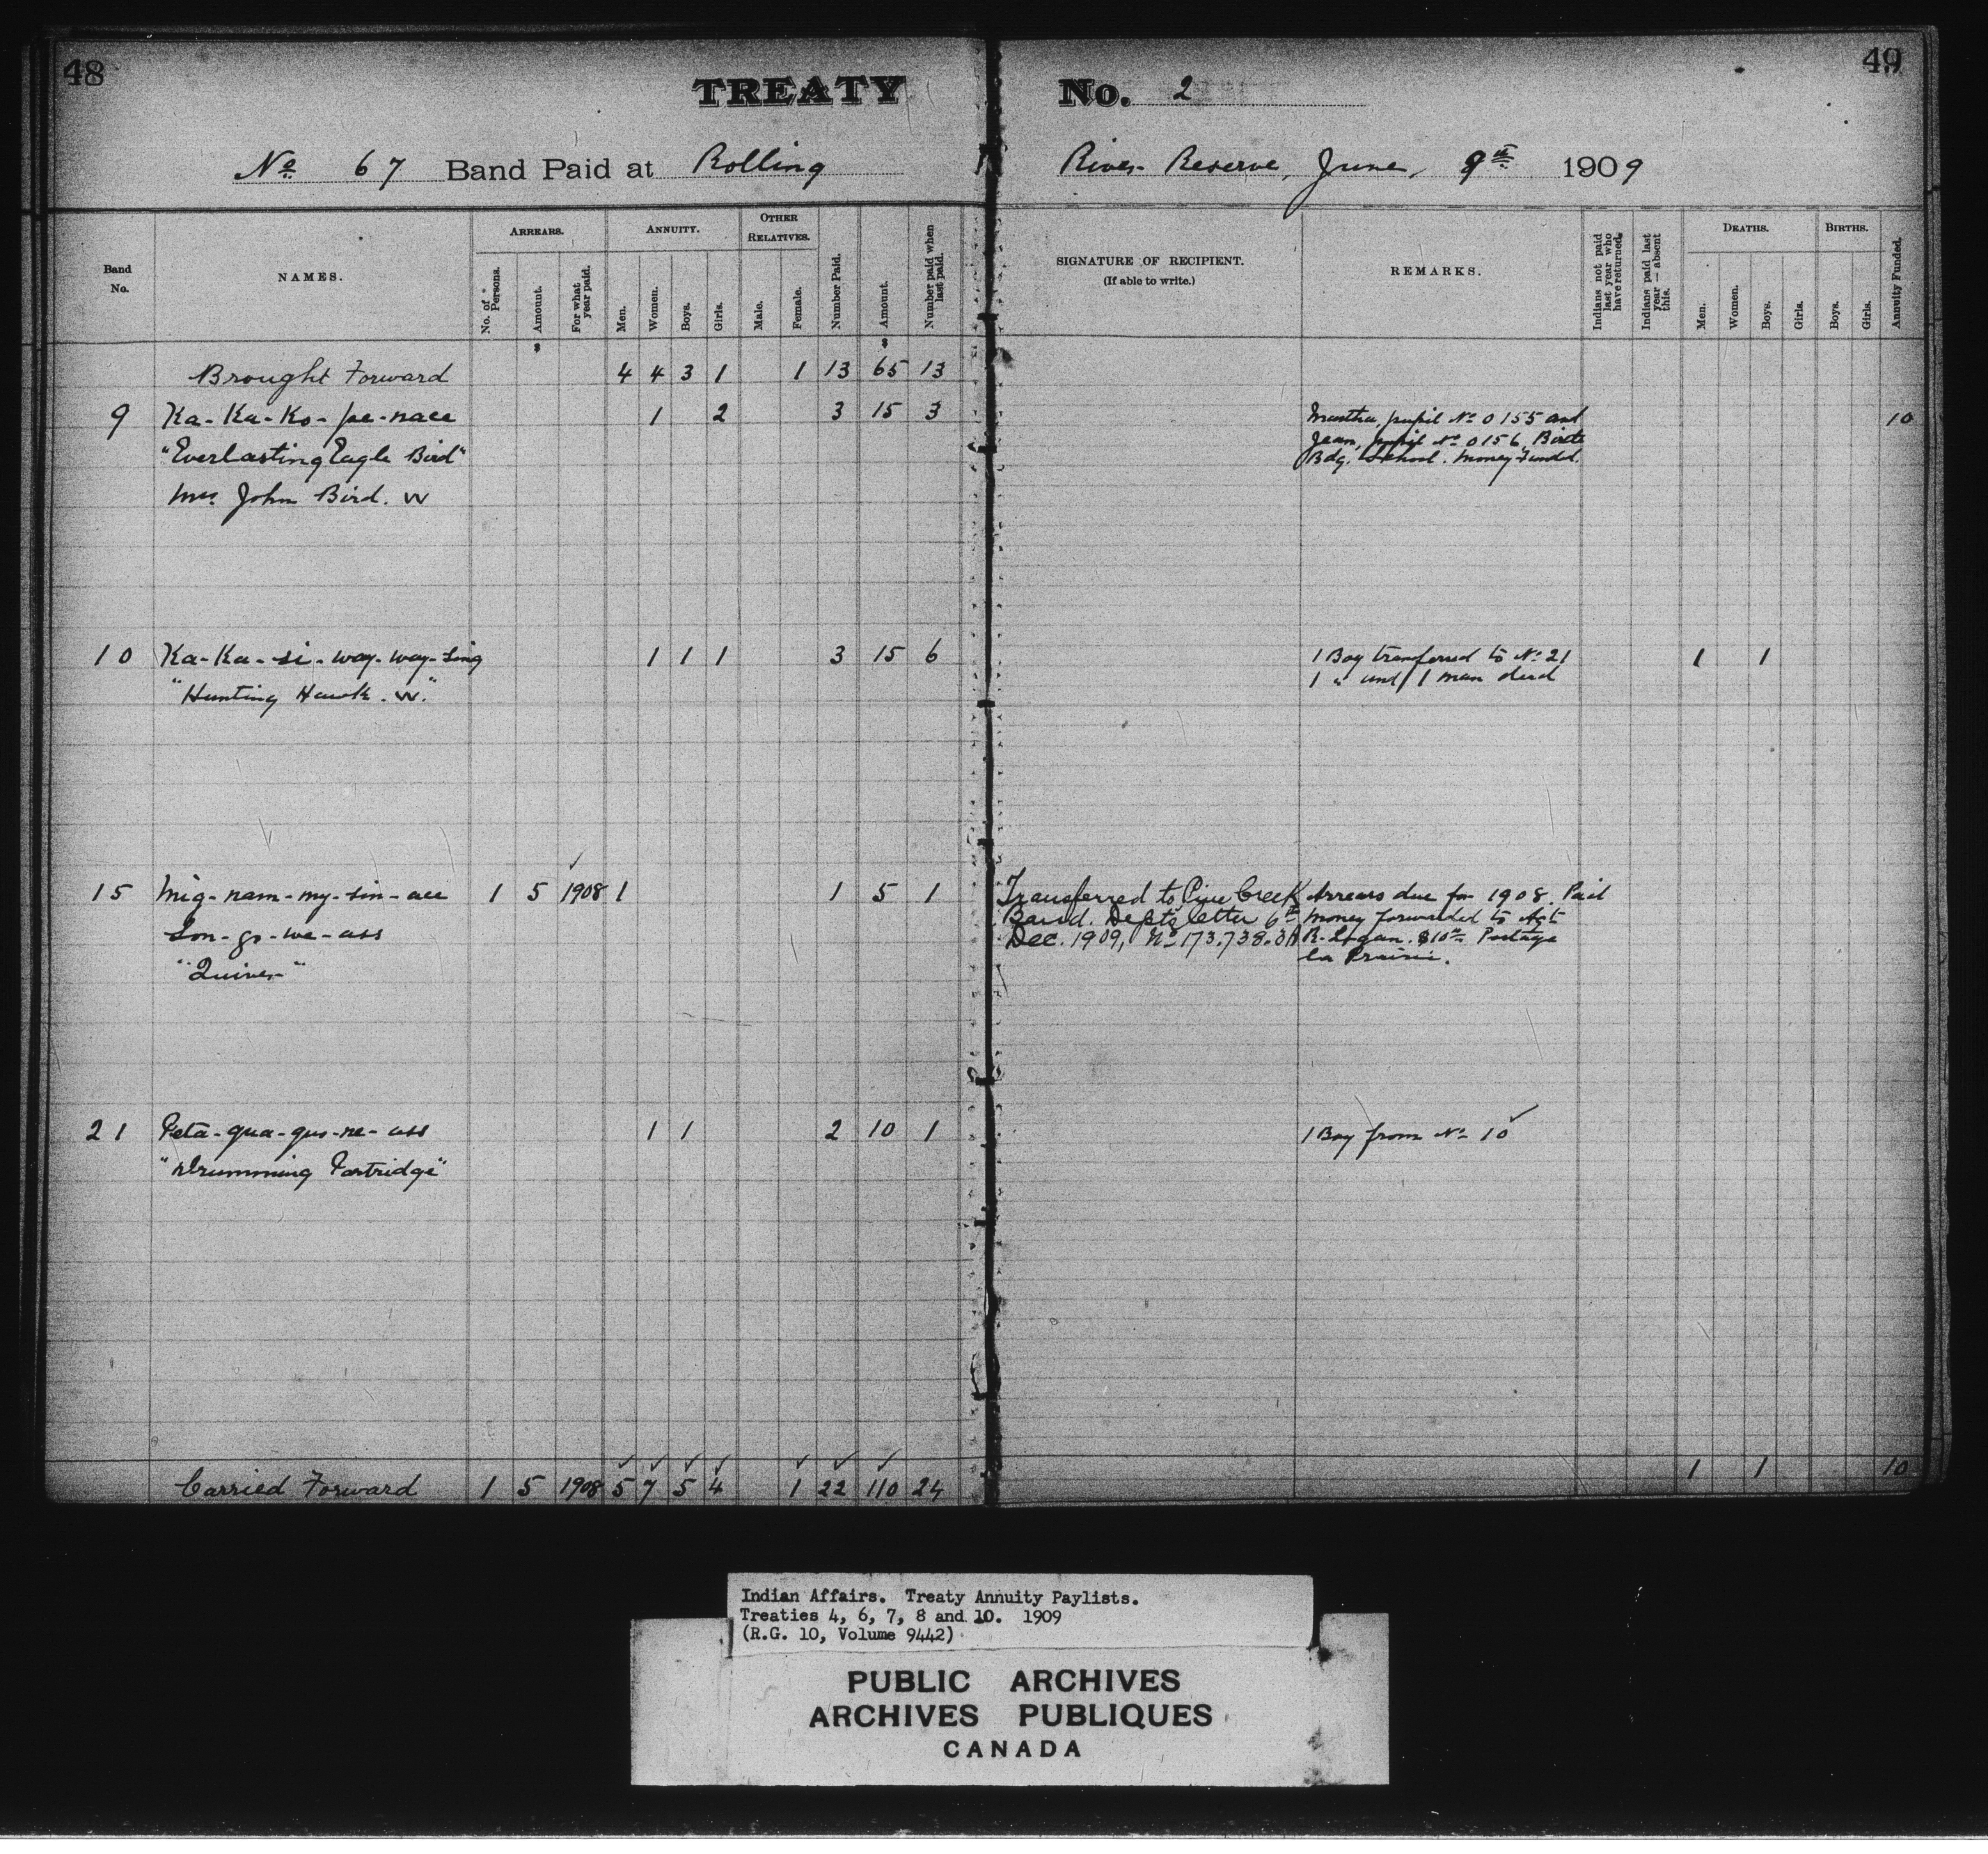 48
TREATY No. 2
49
No. 67 Band Paid at Rolling River Reserve, June, 9th 1909
Band No.
NAMES.
ARREARS.
No. of Persons.
Amount.
For what year paid.
ANNUITY.
Men.
Women.
Boys.
Girls.
OTHER RELATIVES.
Male.
Female.
Number Paid.
Amount.
Number paid when last paid.
SIGNATURE OF RECIPIENT.
(If able to write.)
REMARKS.
Indians not paid last year who have returned.
Indians paid last year — absent this.
DEATHS.
Men.
Women.
Boys.
Girls.
BIRTHS.
Boys.
Girls.
Annuity Funded.
$ $
Brought Forward 4 4 3 1 1 13 65 13
9 Ka-Ka-Ko-pe-nace 1 2 3 15 3 Martha, pupil No 0155 and 10
"Everlasting Eagle Bird" Jean, pupil No 0156, Birtle
Bdg. School. Money Funded.
Mrs John Bird. W
10 Ka-Ka-si-way-way-sing 1 1 1 3 15 6 1 Boy transferred to No 21 1 1
"Hunting Hawk. W." 1 " and 1 man dead
15 Mig-nam-my-sin-ace 1 5 1908 1 1 5 1 Transferred to Pine Creek Arrears due for 1908. Paid
Son-go-we-ass Band. Dept's letter 6th Money forwarded to Agt
Dec. 1909, No 173.738.3A R. Logan. $10 Portage
"Quiver" la Prairie.
21 Peta-qua-gus-ne-ass 1 1 2 10 1 1 Boy from No 10
"Drumming Partridge"
Carried Forward 1 5 1908 5 7 5 4 1 22 110 24 1 1 10
Indian Affairs. Treaty Annuity Paylists.
Treaties 4, 6, 7, 8 and 10. 1909
(R.G. 10, Volume 9442)
PUBLIC ARCHIVES
ARCHIVES PUBLIQUES
CANADA